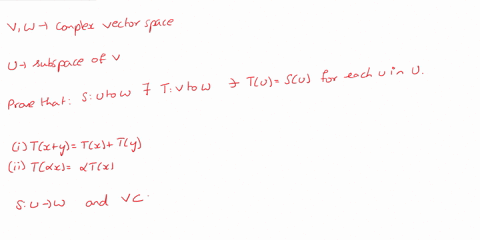 V, W → Complex vector space
U → subspace of V
Prove that: S: U to W ∃ T: V to W ∋ T(u) = S(u) for each u in U.
(i) T(x+y) = T(x) + T(y)
(ii) T(αx) = αT(x)
S: U → W and V C